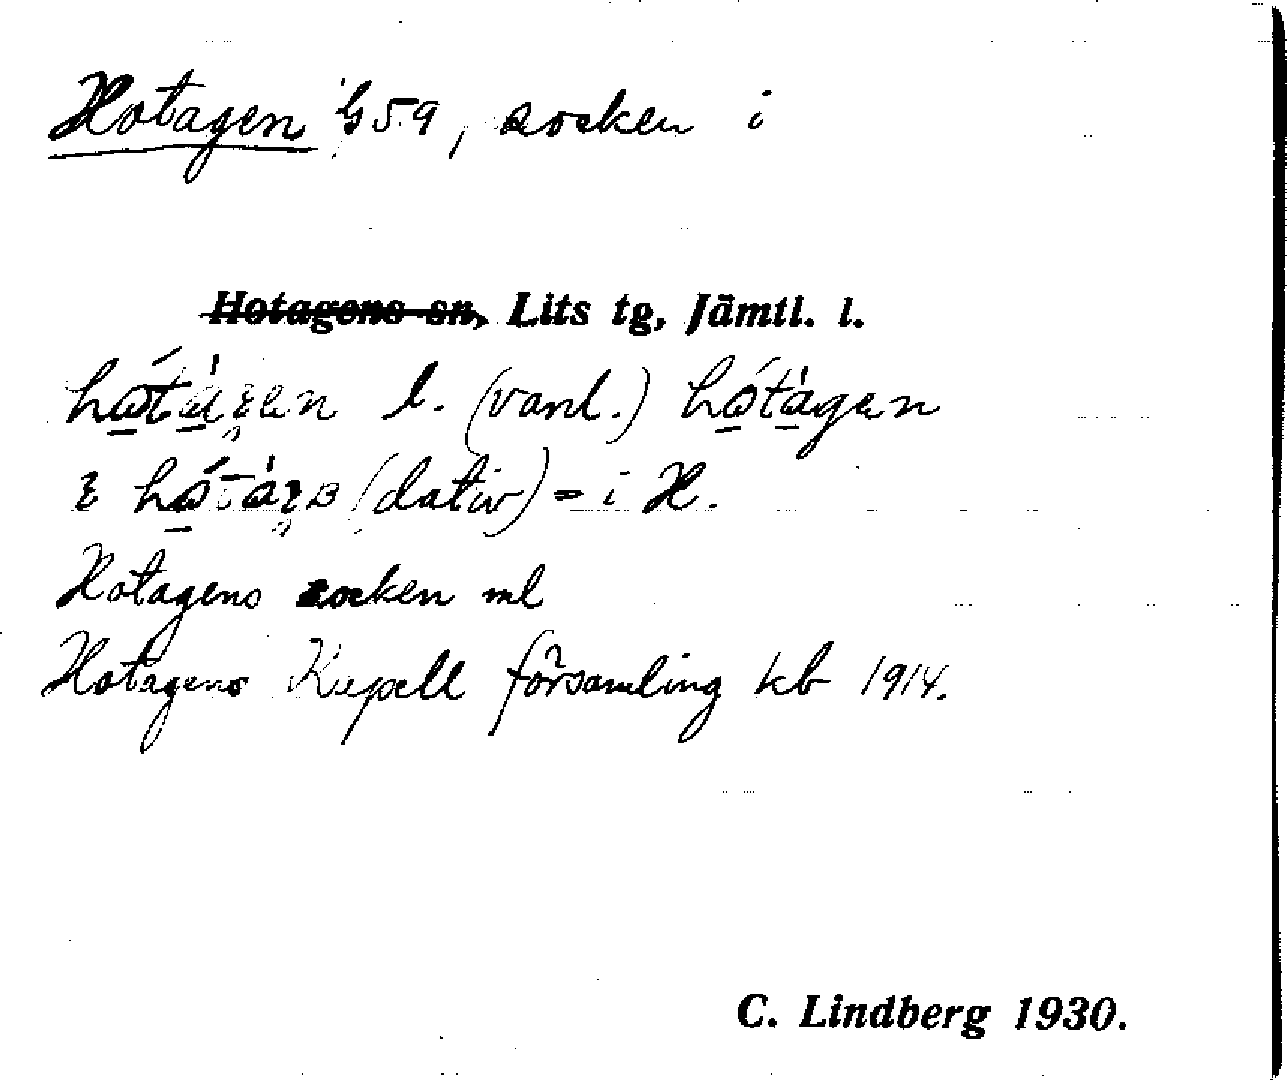 Hotagen 59, socken i
Hotagens sn, Lits tg, Jämtl. l.
hótàgen l. (vanl.) hótàgen
(dativ) = i H.
Hotagens socken ml
Hotagens Kapell församling kb 1914.
C. Lindberg 1930.